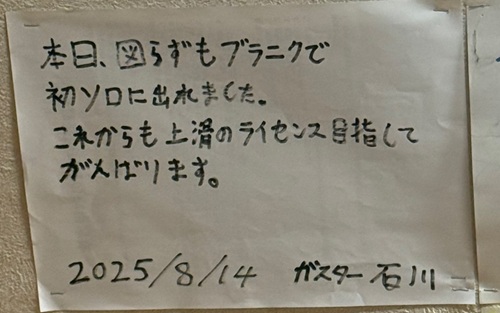 本日、図らずもブラニクで
初ソロに出れました。
これからも上滑のライセンス目指して
がんばります。
2025/8/14 ガスター 石川